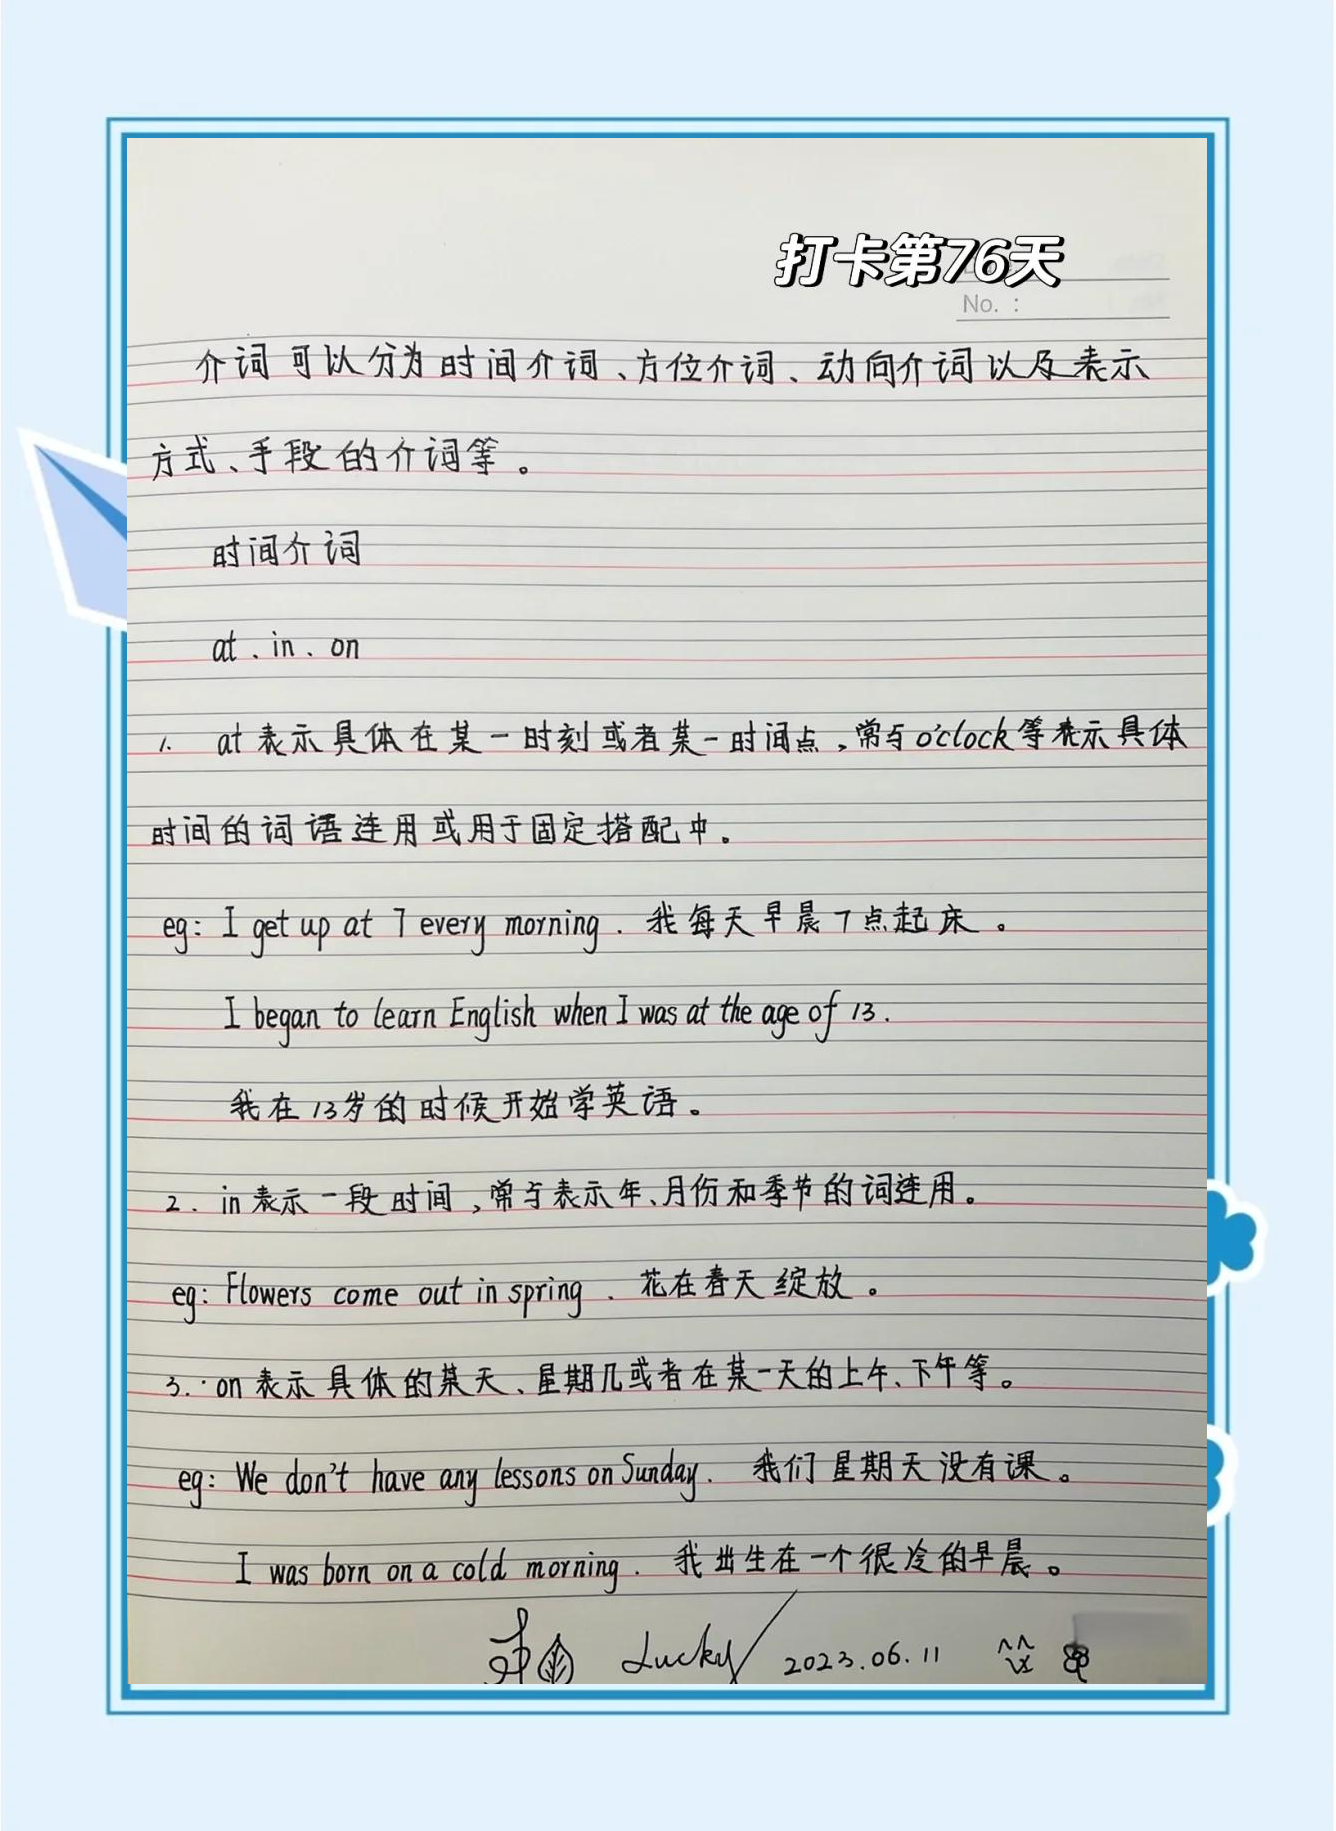 打卡第76天
No. :
介词可以分为时间介词、方位介词、动向介词以及表示
方式、手段的介词等。
时间介词
at、in、on
1. at表示具体在某一时刻或者某一时间点,常与o'clock等表示具体
时间的词语连用或用于固定搭配中。
eg: I get up at 7 every morning. 我每天早晨7点起床。
I began to learn English when I was at the age of 13.
我在13岁的时候开始学英语。
2. in表示一段时间,常与表示年、月份和季节的词连用。
eg: Flowers come out in spring. 花在春天绽放。
3. on表示具体的某天、星期几或者在某一天的上午、下午等。
eg: We don't have any lessons on Sunday. 我们星期天没有课。
I was born on a cold morning. 我出生在一个很冷的早晨。
Lucky 2023.06.11